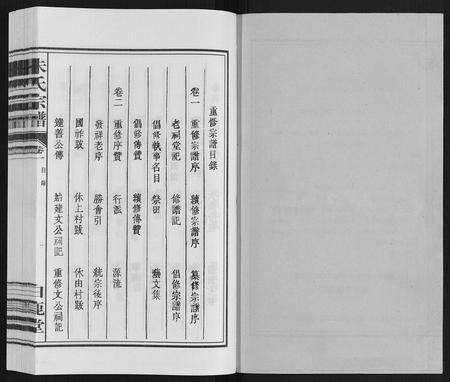 重修宗譜目錄
卷一 重修宗譜序 續修宗譜序 纂修宗譜序
老祠堂記 修譜記 倡修宗譜序
倡修執事名目 祭田 藝文集
倡修傳贊 續修傳贊
卷二 重修序贊 行派 源流
發祥老序 勝會引 統宗後序
國祥跋 休上村跋 休由村跋
達善公傳 始建文公祠記 重修文公祠記
朱氏宗譜 卷一 目錄 一